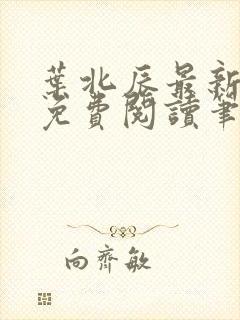 葉北辰最新
免費閱讀筆
向齊敏